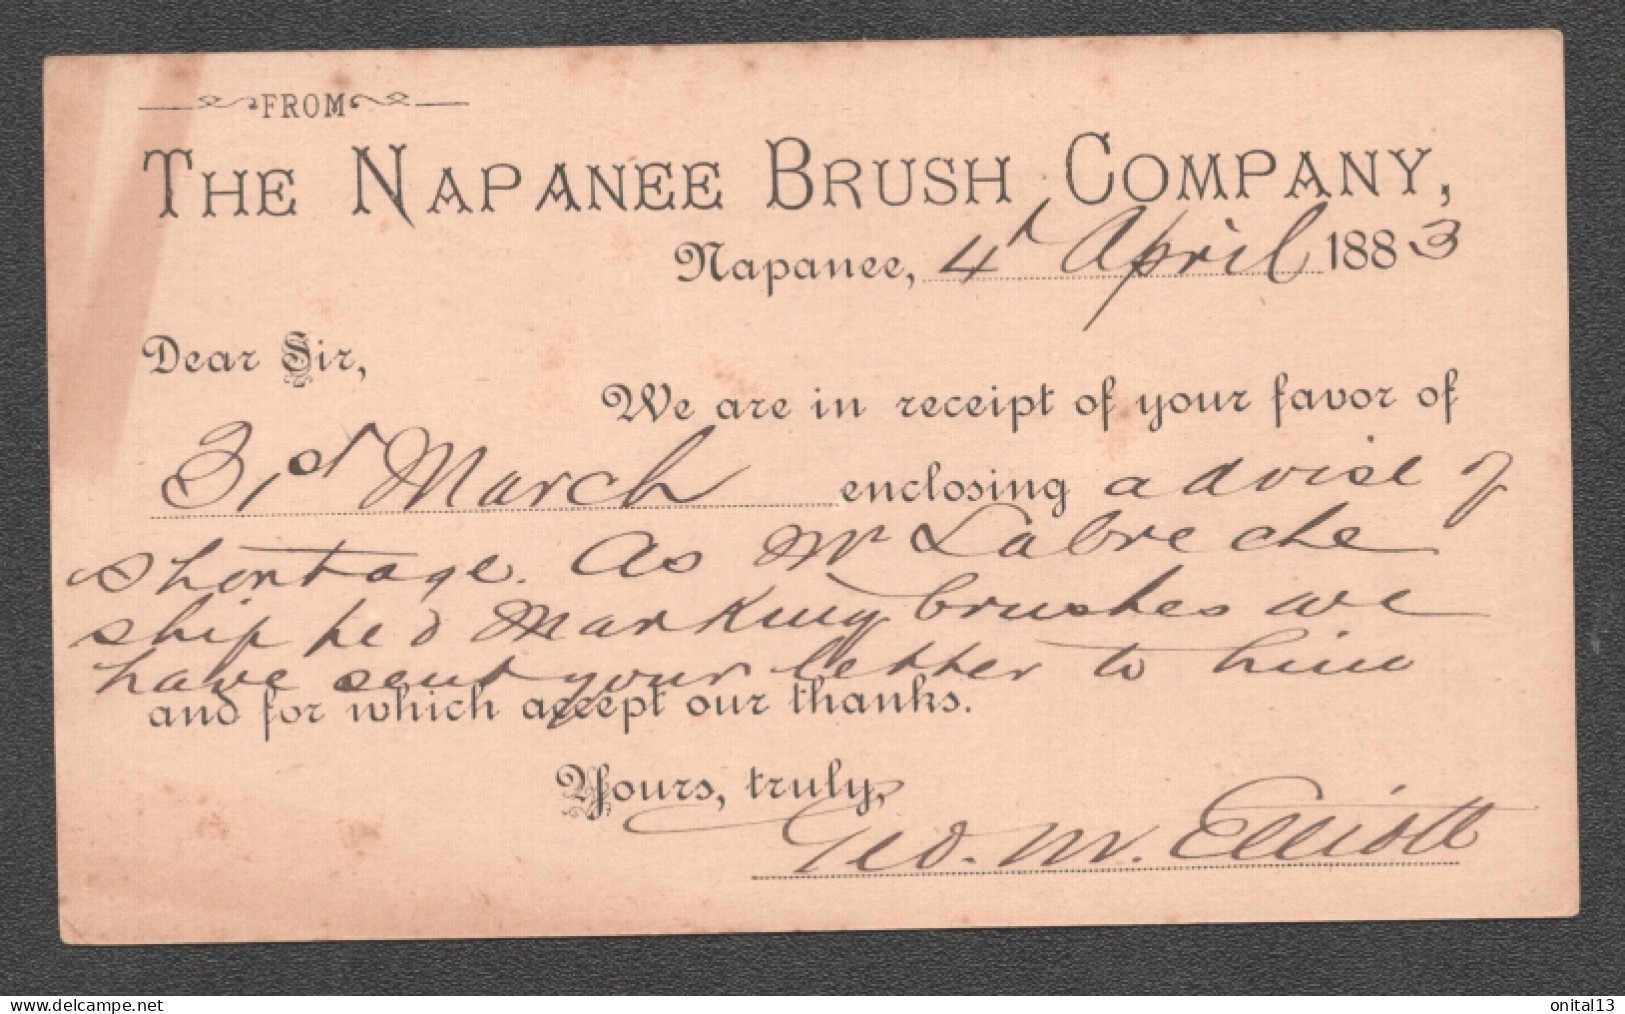 FROM
THE NAPANEE BRUSH COMPANY,
Napanee, 4th April 1883
Dear Sir,
We are in receipt of your favor of
31st March enclosing advise of
shortage. As Mr Labreche
shipped Marking brushes we
have sent your letter to him
and for which accept our thanks.
Yours, truly,
Geo. M. Elliott
www.delcampe.net
onital13